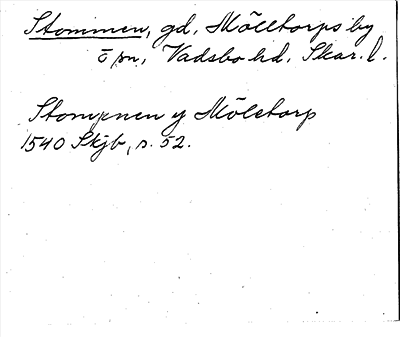 Stommen, gd, Mölltorps by
o sn., Vadsbo hd. Skar. l.
Stompnen y Möletorp
1540 Skjb, s. 52.